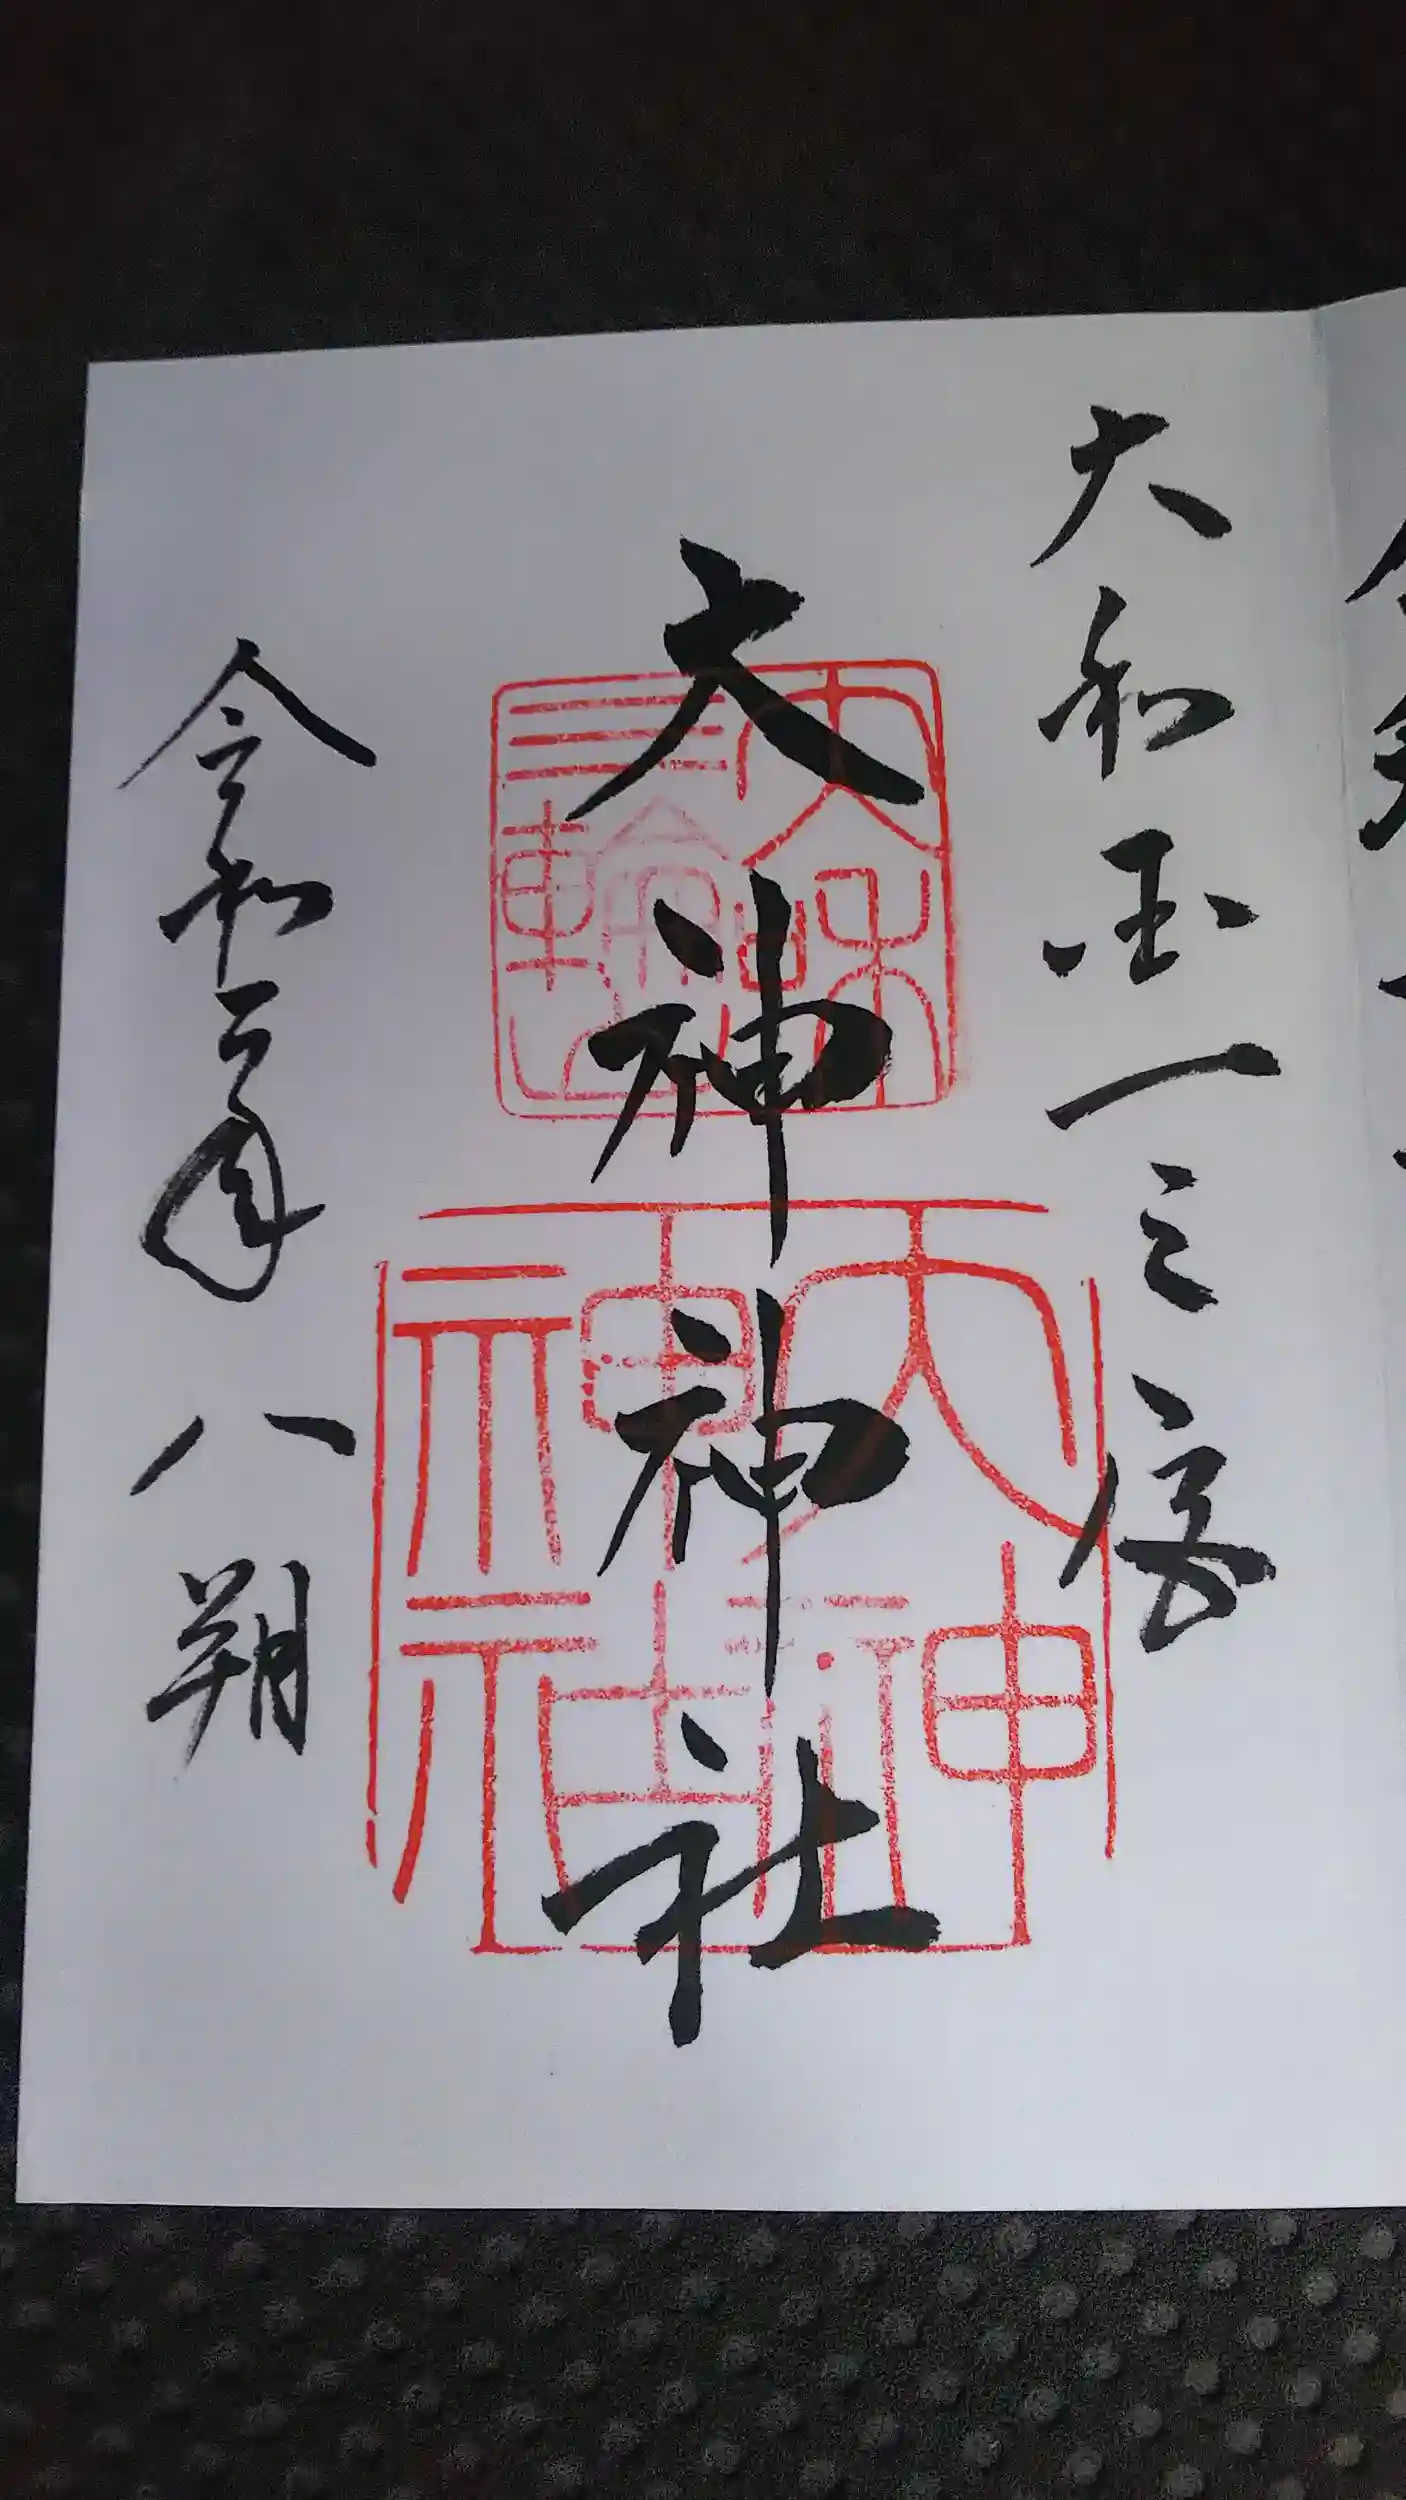 大和国一之宮
大神神社
大和
三輪
大神
神社
令和二年八朔